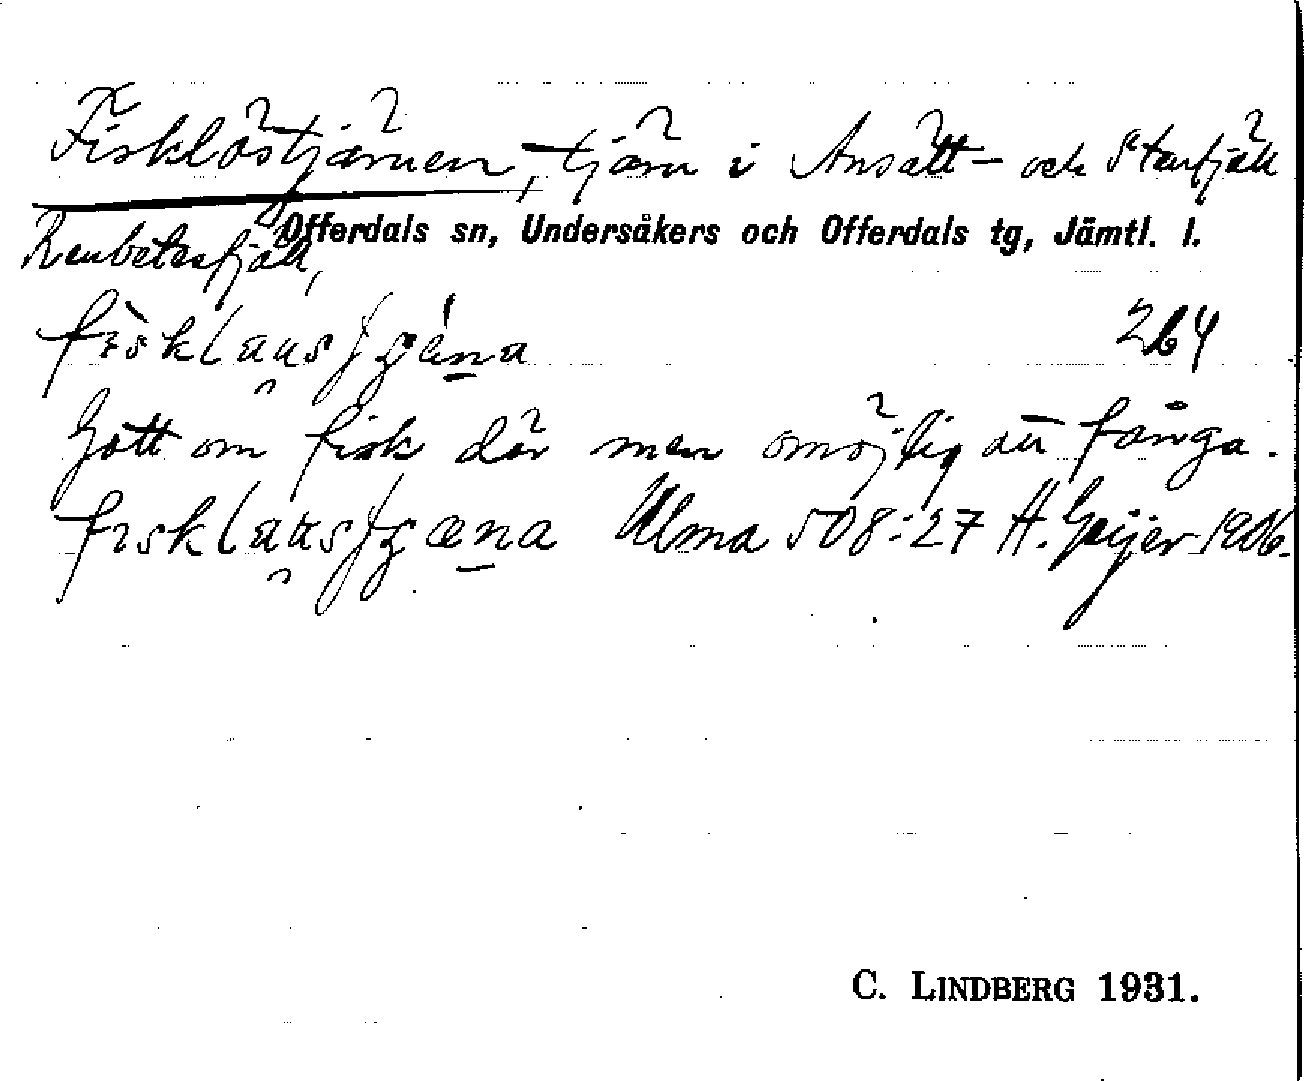 Fisklöstjärnen, tjärn i Ansätt- och Stenfjäll
Offerdals sn, Undersåkers och Offerdals tg, Jämtl. l.
Renbetesfjäll,
264
Gott om fisk där men omöjlig att fånga.
Ulma 508:27 H. Geijer 1906.
C. LINDBERG 1931.